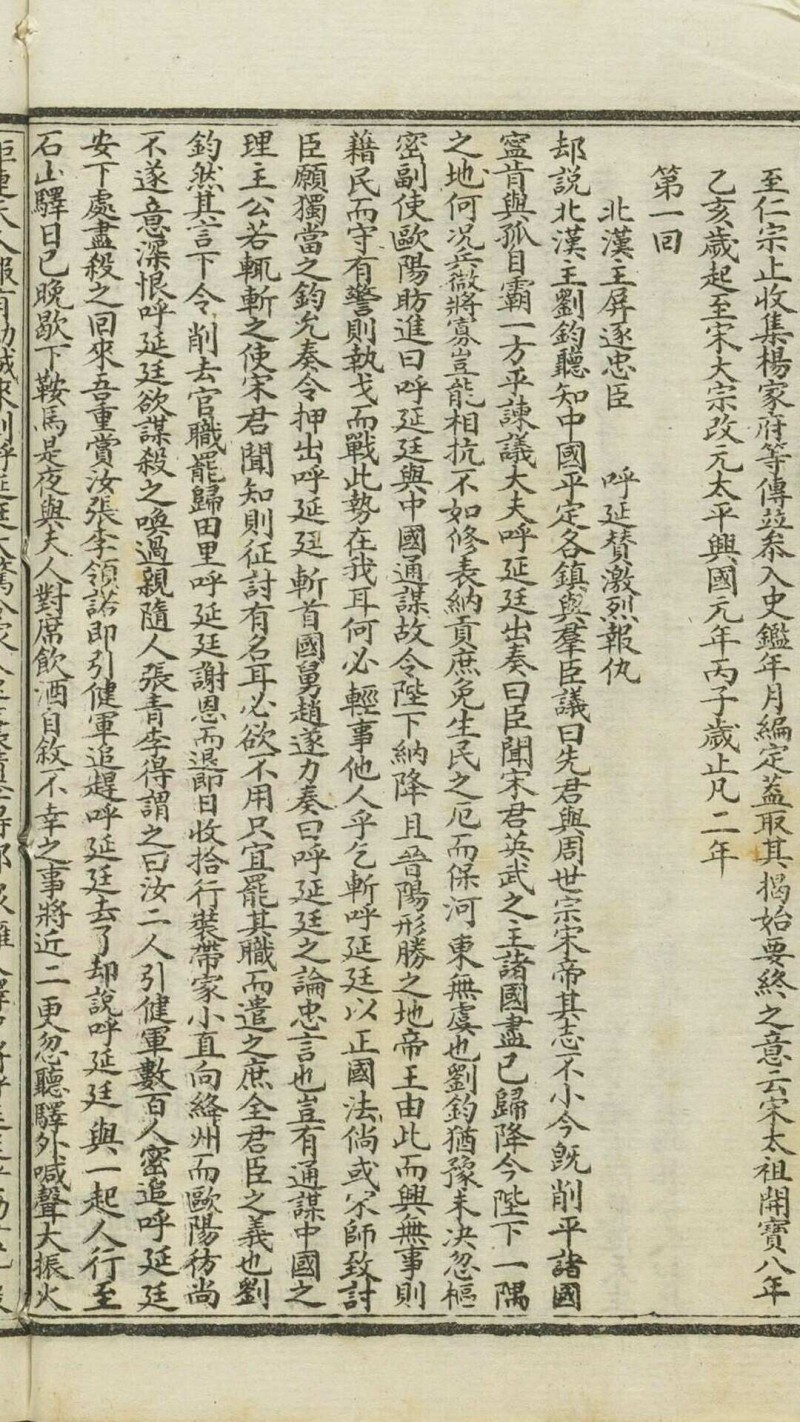 至仁宗止收集楊家府等傳並叅入史鑑年月編定蓋取其揭始要終之意云宋太祖開寶八年
乙亥歲起至宋太宗改元太平興國元年丙子歲止凡二年
第一回
北漢王屏逐忠臣　呼延贊激烈報仇
却說北漢王劉鈞聽知中國平定各鎮與羣臣議曰先君與周世宗宋帝其志不小今旣削平諸國
寧肯與孤自霸一方乎諫議大夫呼延廷出奏曰臣聞宋君英武之主諸國盡已歸降今陛下一隅
之地何况兵微將寡豈能相抗不如修表納貢庶免生民之厄而保河東無虞也劉鈞猶豫未決忽樞
密副使歐陽昉進曰呼延廷與中國通謀故令陛下納降且晉陽形勝之地帝王由此而興無事則
藉民而守有警則執戈而戰此勢在我耳何必輕事他人乎乞斬呼延廷以正國法倘或宋師致討
臣願獨當之鈞允奏令押出呼延廷斬首國舅趙遂力奏曰呼延廷之論忠言也豈有通謀中國之
理主公若輒斬之使宋君聞知則征討有名耳必欲不用只宜罷其職而遣之庶全君臣之義也劉
鈞然其言下令削去官職罷歸田里呼延廷謝恩而退即日收拾行裝帶家小直向絳州而歐陽彷尚
不遂意深恨呼延廷欲謀殺之喚過親隨人張青李得謂之曰汝二人引健軍數百人密追呼延廷
安下處盡殺之囘來吾重賞汝張李領諾即引健軍追趕呼延廷去了却說呼延廷與一起人行至
石山驛日已晚歇下鞍馬是夜與夫人對席飲酒自敘不幸之事將近二更忽聽驛外喊聲大振火